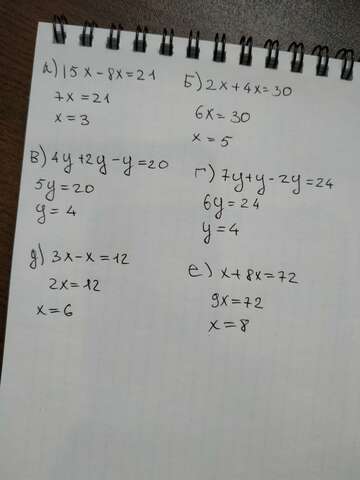 а) 15x - 8x = 21
7x = 21
x = 3
Б) 2x + 4x = 30
6x = 30
x = 5
в) 4y + 2y - y = 20
5y = 20
y = 4
г) 7y + y - 2y = 24
6y = 24
y = 4
д) 3x - x = 12
2x = 12
x = 6
е) x + 8x = 72
9x = 72
x = 8